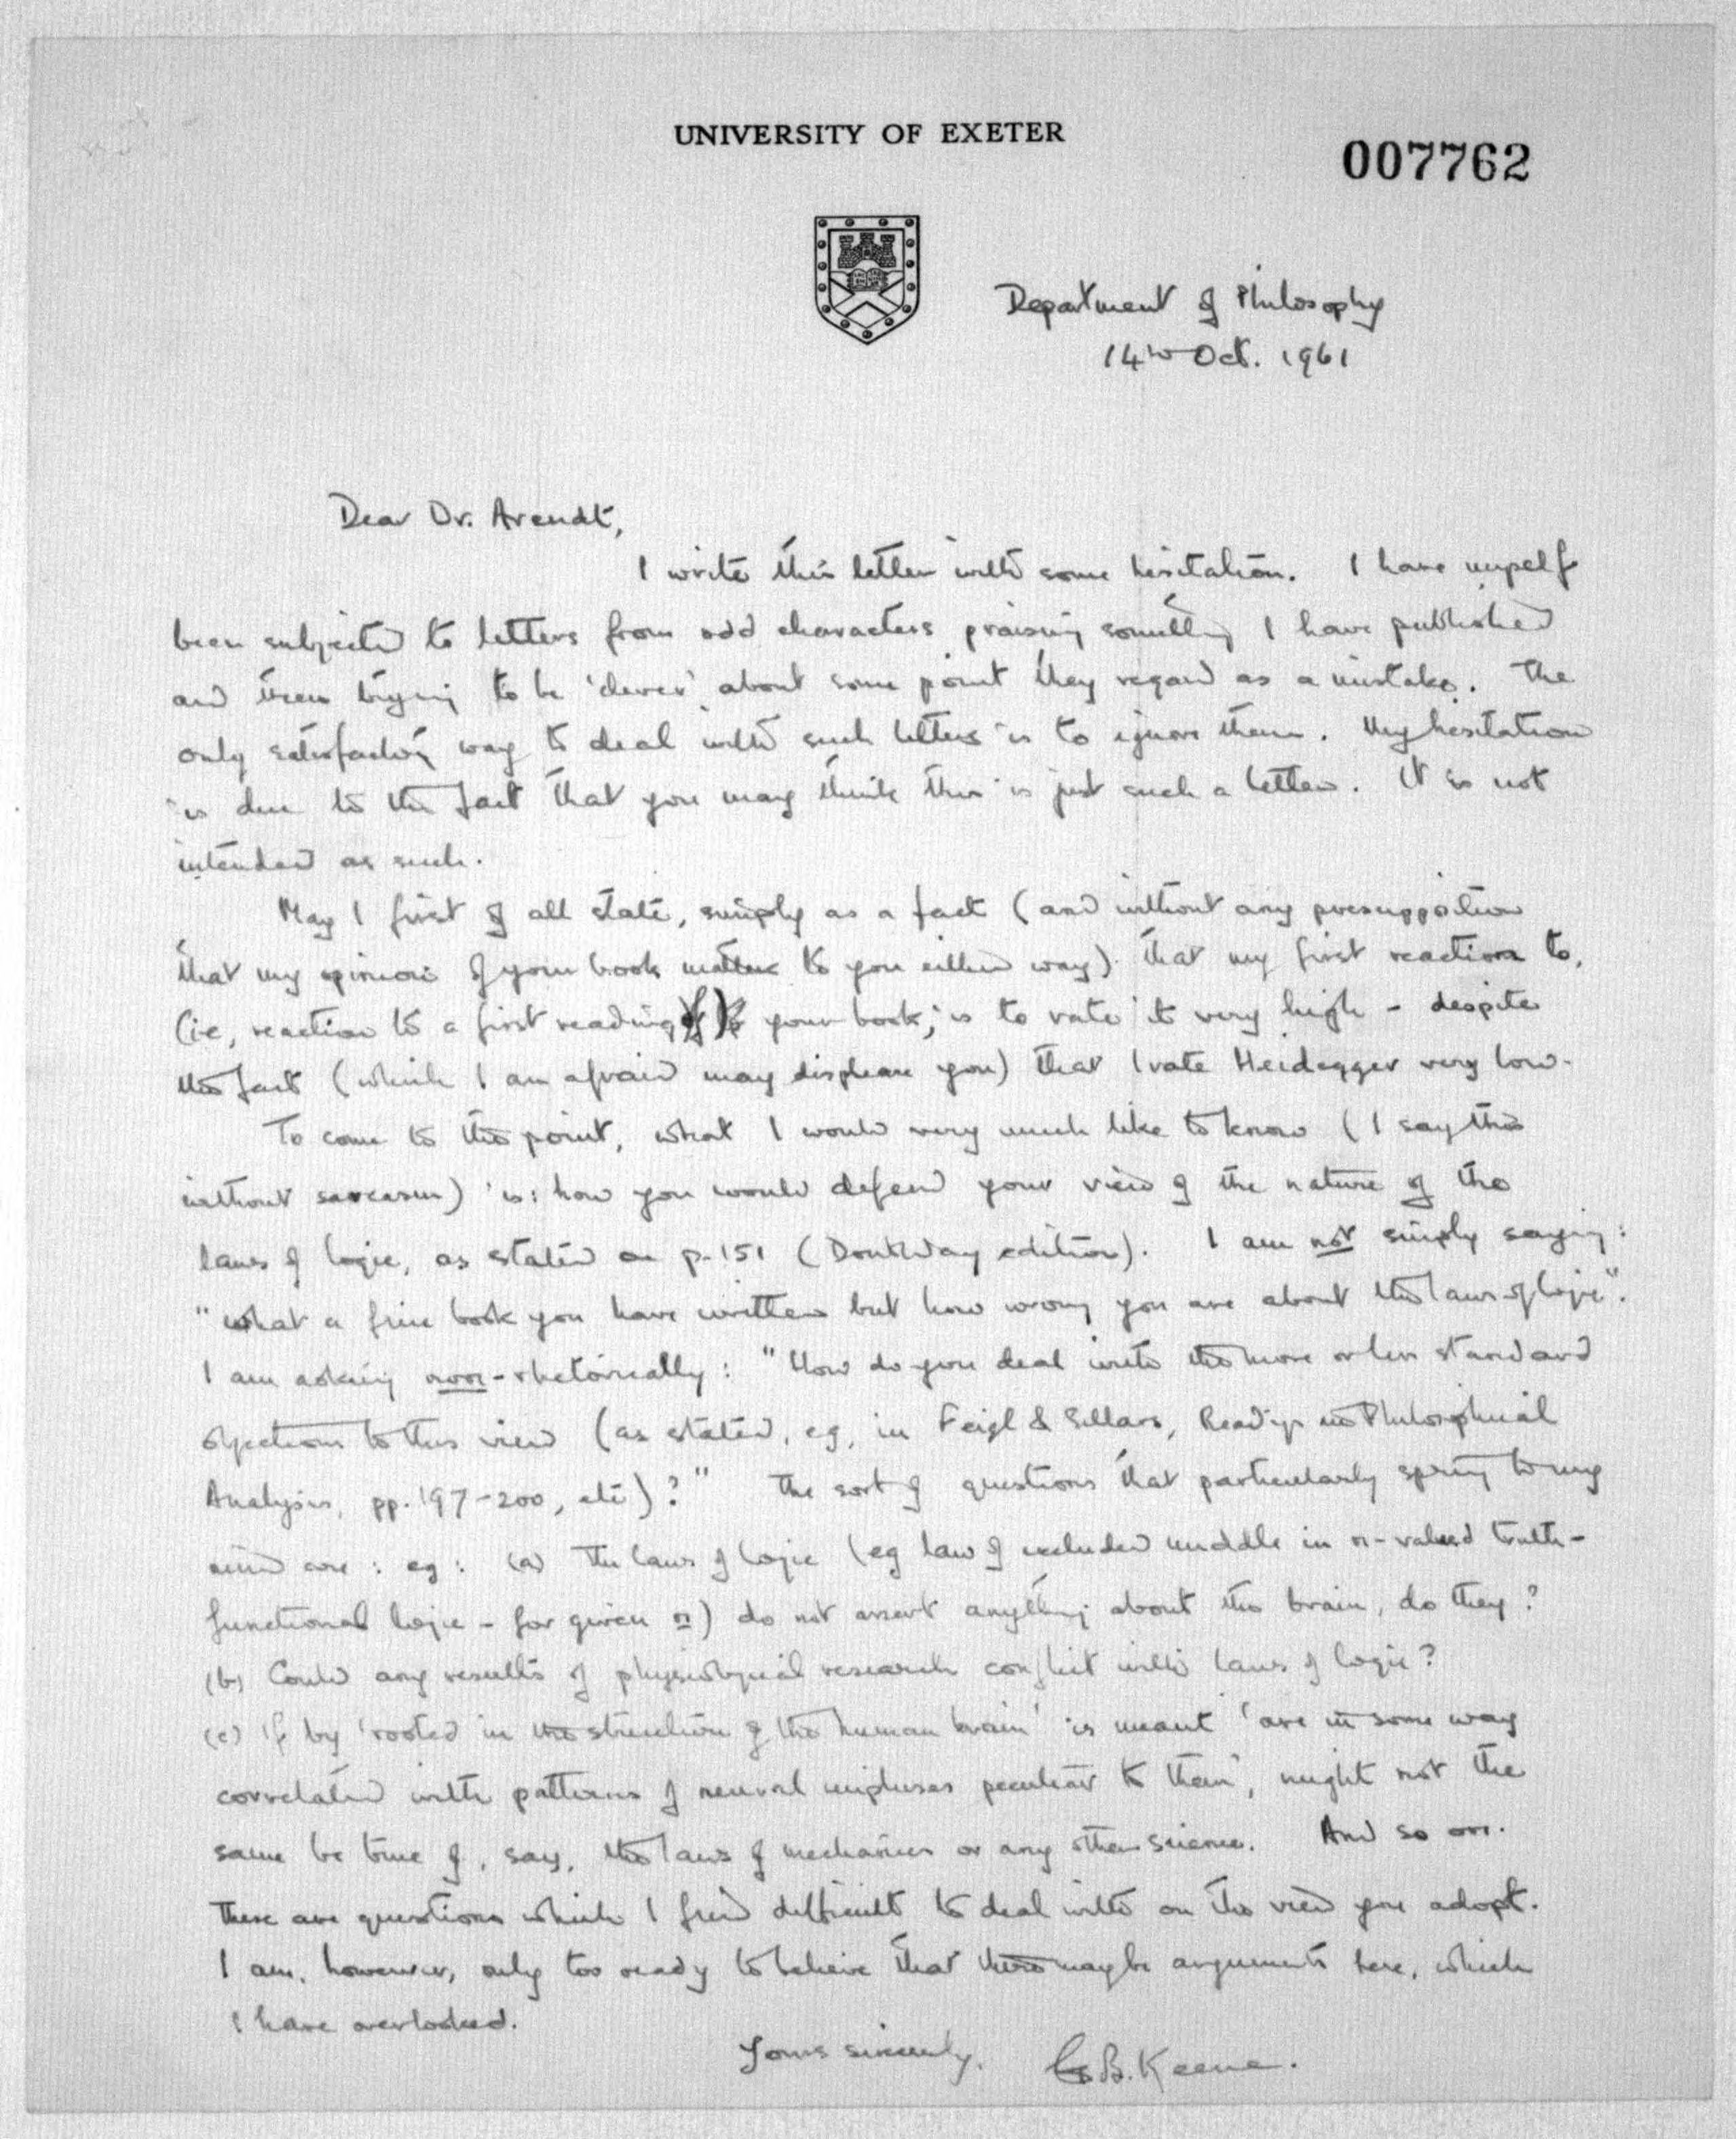 UNIVERSITY OF EXETER
007762
Department of Philosophy
14th Oct. 1961
Dear Dr. Arendt,
I write this letter with some hesitation. I have myself
been subjected to letters from odd characters praising something I have published
and then trying to be 'clever' about some point they regard as a mistake. The
only satisfactory way to deal with such letters is to ignore them. My hesitation
is due to the fact that you may think this is just such a letter. It is not
intended as such.
May I first of all state, simply as a fact (and without any presupposition
that my opinion of your book matters to you either way) that my first reaction to,
(ie, reaction to a first reading of) your book, is to rate it very high - despite
the fact (which I am afraid may displease you) that I rate Heidegger very low.
To come to the point, what I would very much like to know (I say this
without sarcasm) is: how you would defend your view of the nature of the
laws of logic, as stated on p.151 (Doubleday edition). I am not simply saying:
"what a fine book you have written but how wrong you are about the laws of logic".
I am asking non-rhetorically: "How do you deal with the more or less standard
objections to this view (as stated, eg, in Feigl & Sellars, Readings in Philosophical
Analysis, pp. 197-200, etc)?" The sort of questions that particularly spring to my
mind are: eg: (a) The laws of logic (eg law of excluded middle in n-valued truth-
functional logic - for given n) do not assert anything about the brain, do they?
(b) Could any results of physiological research conflict with laws of logic?
(c) If by 'rooted in the structure of the human brain' is meant 'are in some way
correlated with patterns of neural impulses peculiar to them', might not the
same be true of, say, the laws of mechanics or any other science. And so on.
These are questions which I find difficult to deal with on the view you adopt.
I am, however, only too ready to believe that there may be arguments here, which
I have overlooked.
Yours sincerely, G.B. Keene.